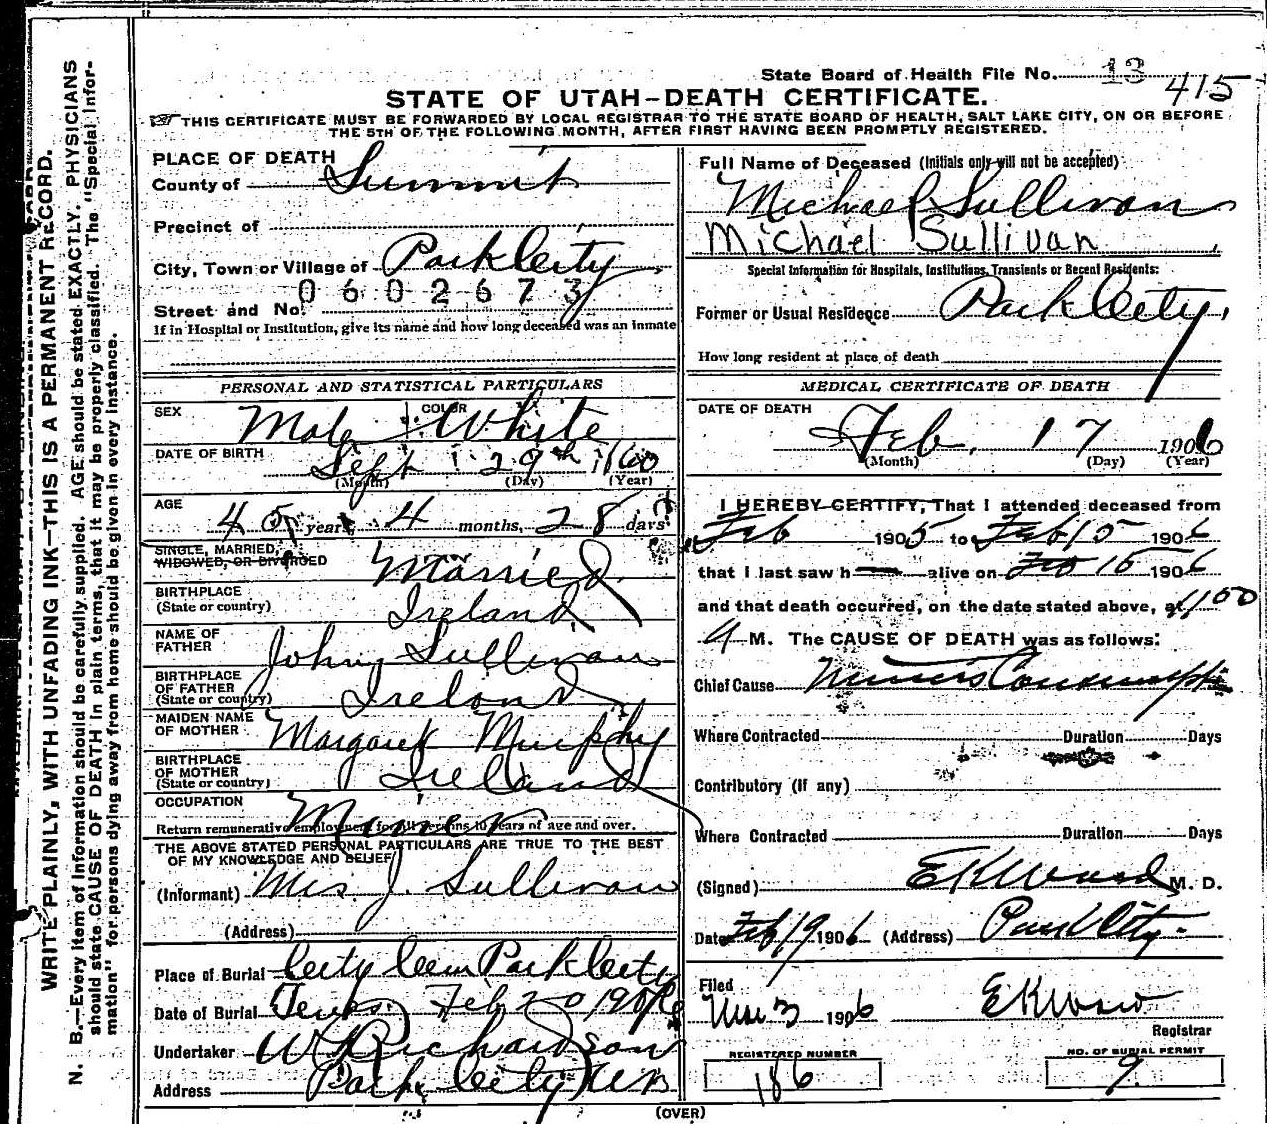 WRITE PLAINLY, WITH UNFADING INK—THIS IS A PERMANENT RECORD.
N. B.—Every item of Information should be carefully supplied. AGE should be stated EXACTLY. PHYSICIANS
should state CAUSE OF DEATH in plain terms, that it may be properly classified. The "Special Infor-
mation" for persons dying away from home should be given in every instance.
State Board of Health File No. 13
415
STATE OF UTAH—DEATH CERTIFICATE.
THIS CERTIFICATE MUST BE FORWARDED BY LOCAL REGISTRAR TO THE STATE BOARD OF HEALTH, SALT LAKE CITY, ON OR BEFORE
THE 5TH OF THE FOLLOWING MONTH, AFTER FIRST HAVING BEEN PROMPTLY REGISTERED.
PLACE OF DEATH
County of Summit
Precinct of
City, Town or Village of Park City
0602673
Street and No.
If in Hospital or Institution, give its name and how long deceased was an inmate
Full Name of Deceased (Initials only will not be accepted)
Michael Sullivan
Michael Sullivan
Special Information for Hospitals, Institutions, Transients or Recent Residents:
Former or Usual Residence Park City,
How long resident at place of death
PERSONAL AND STATISTICAL PARTICULARS
SEX Male COLOR White
DATE OF BIRTH Sept 29th 1860
(Month) (Day) (Year)
AGE 45 years 4 months, 28 days
SINGLE, MARRIED,
WIDOWED, OR DIVORCED Married
BIRTHPLACE
(State or country) Ireland
NAME OF
FATHER John Sullivan
BIRTHPLACE
OF FATHER
(State or country) Ireland
MAIDEN NAME
OF MOTHER Margaret Murphy
BIRTHPLACE
OF MOTHER
(State or country) Ireland
OCCUPATION Miner
Return remunerative employment for all persons 10 years of age and over.
THE ABOVE STATED PERSONAL PARTICULARS ARE TRUE TO THE BEST
OF MY KNOWLEDGE AND BELIEF
(Informant) Mrs J. Sullivan
(Address)
Place of Burial City Cem Park City
Date of Burial Feb 20 190
Undertaker W Richardson
Address Park City
MEDICAL CERTIFICATE OF DEATH
DATE OF DEATH
Feb. 17 1906
(Month) (Day) (Year)
I HEREBY CERTIFY, That I attended deceased from
Feb 1905 to Feb 15 1906
that I last saw h alive on Feb 15 1906
and that death occurred, on the date stated above, at 1100
M. The CAUSE OF DEATH was as follows:
Chief Cause Miners Consumption
Where Contracted Duration Days
Contributory (if any)
Where Contracted Duration Days
(Signed) E K Ward M. D.
Date Feb 19 1906 (Address) Park City.
Filed
Mar 3 1906 E K Ward
Registrar
REGISTERED NUMBER
186
NO. OF BURIAL PERMIT
9
(OVER)